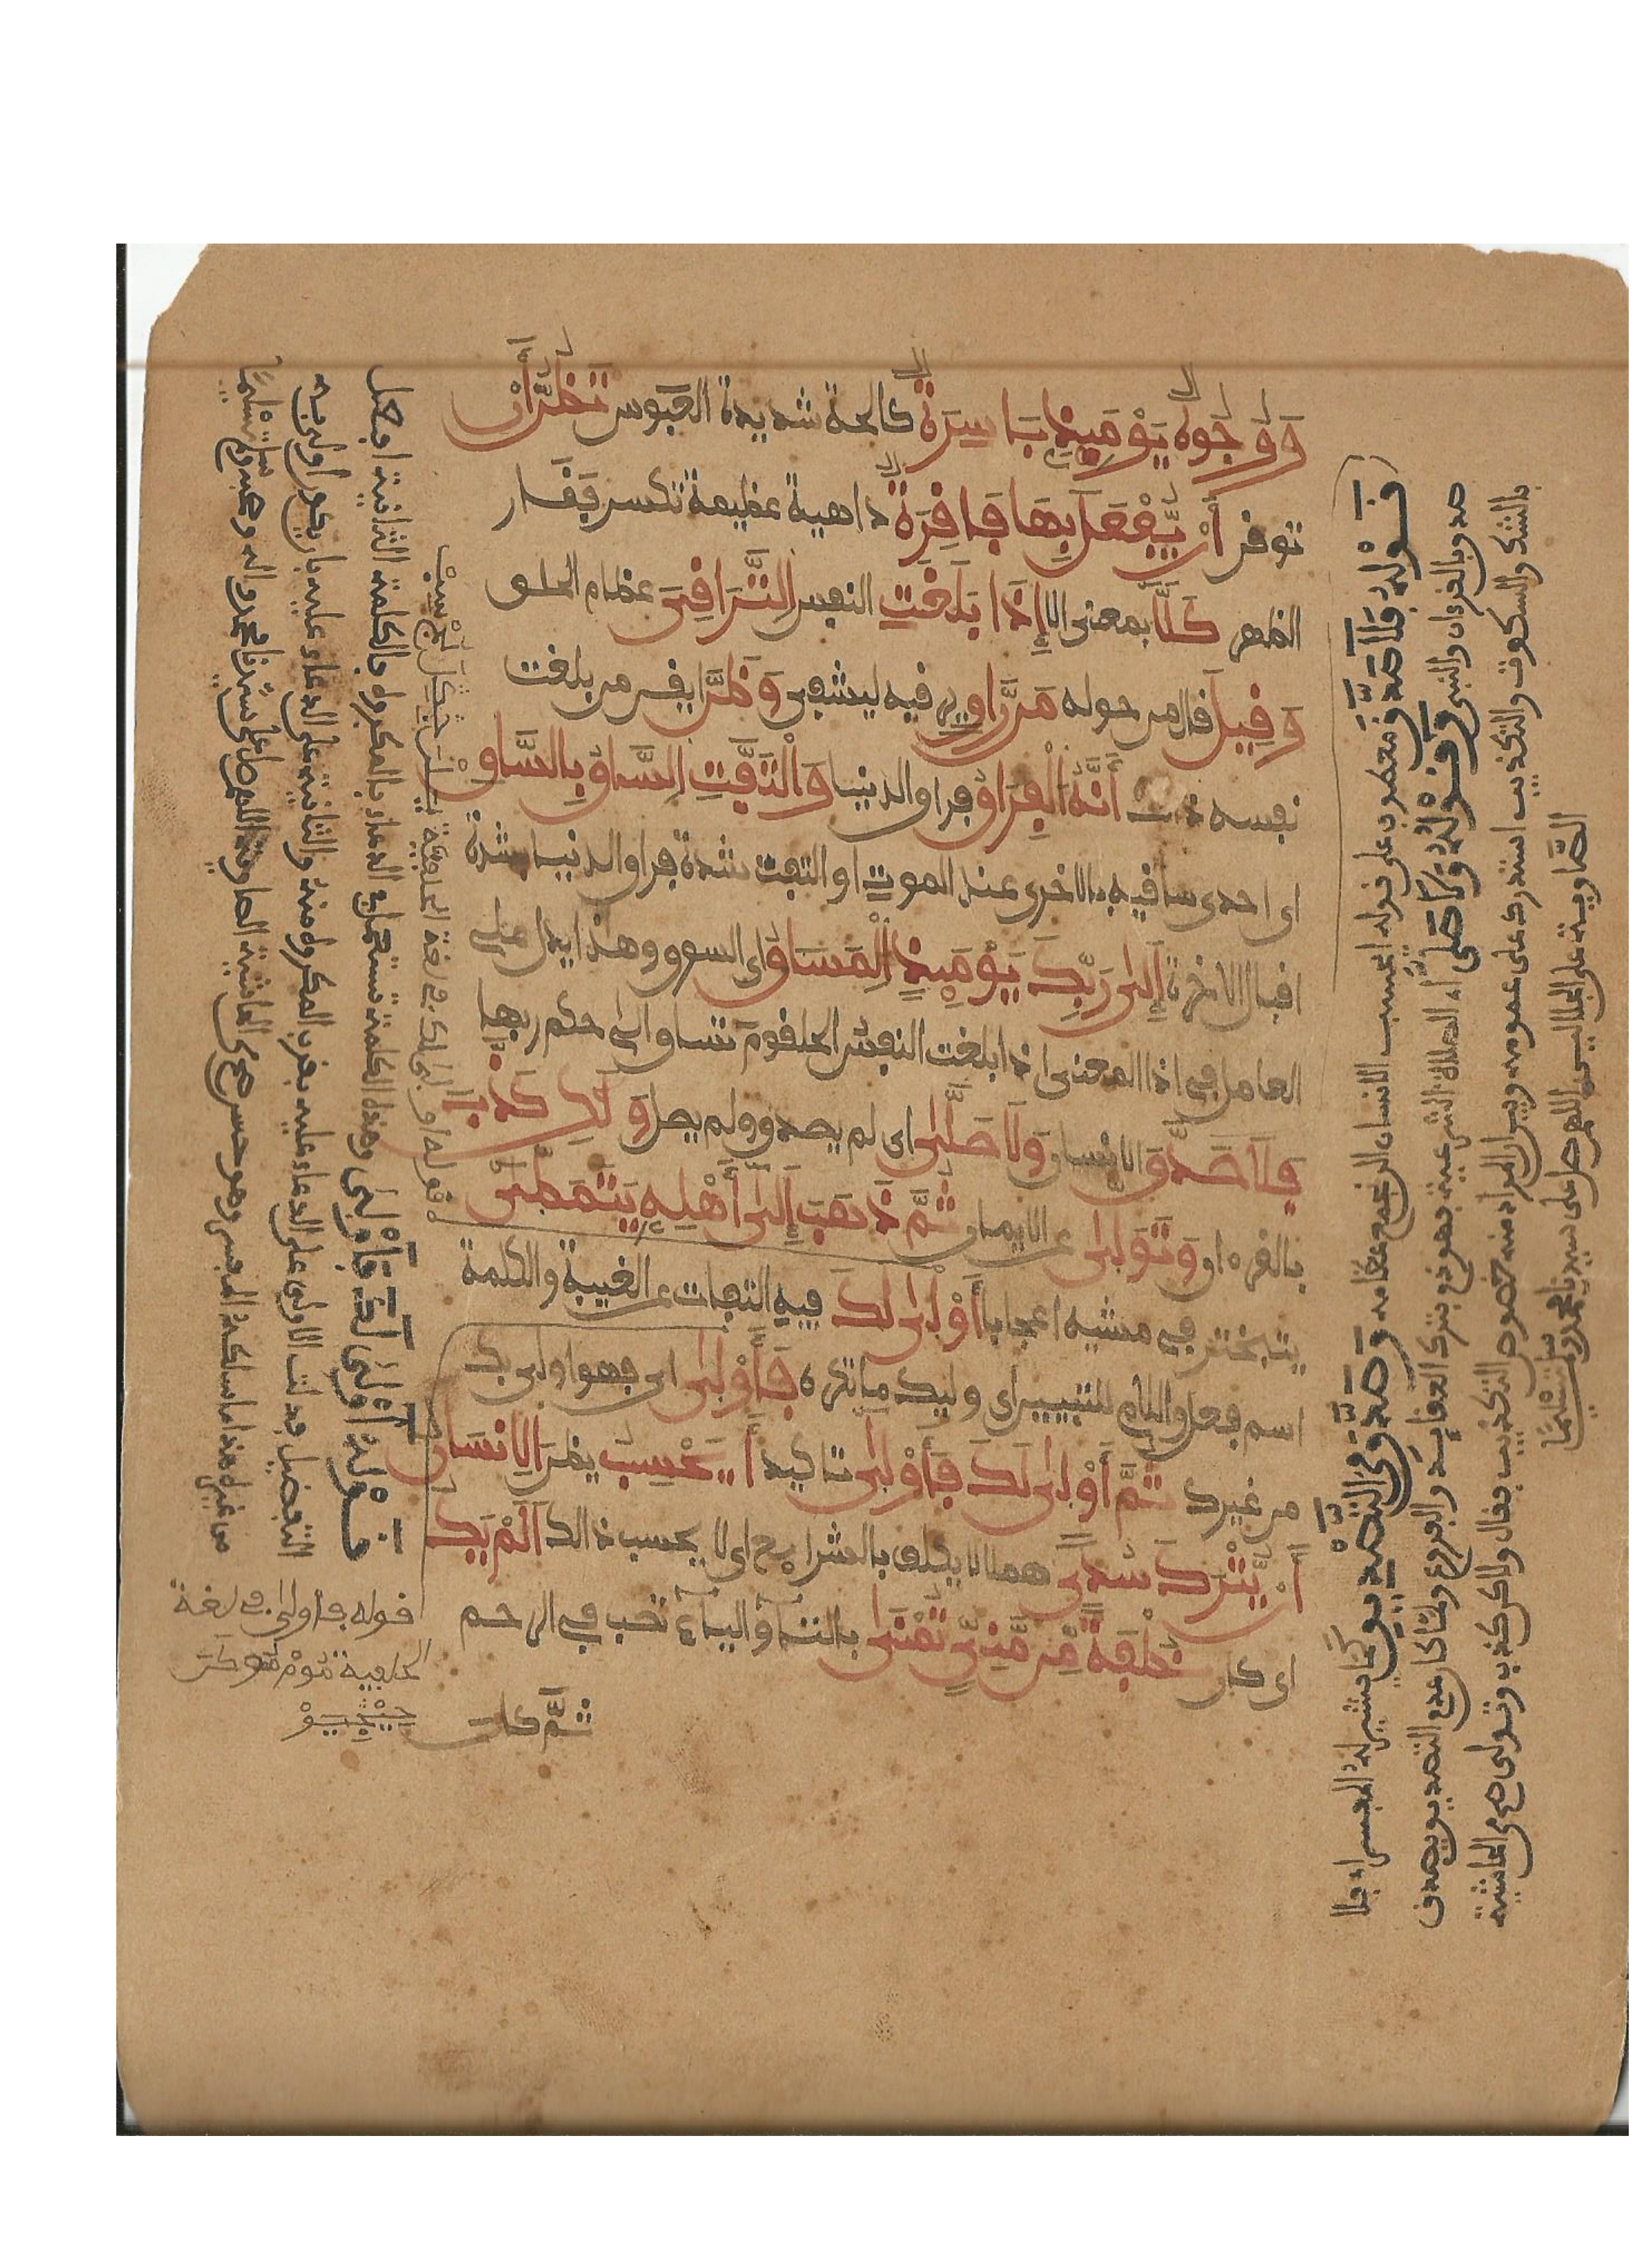 وَوُجُوهٌ يَوْمَئِذٍ بَاسِرَةٌ كالحة شديدة العبوس تَظُنُّ أَنْ
توفن أَنْ يُّفْعَلَ بِهَا فَاقِرَةٌ داهية عظيمة تكسر فقار
الظهر كَلَّا بمعنى الا إِذَا بَلَغَتِ النفس التَّرَاقِيَ عظام الحلق
وَقِيلَ قال من حوله مَن رَّاقٍ يرقيه ليشفى وَظَنَّ ايقن من بلغت
نفسه ذلك أَنَّهُ الْفِرَاقُ فراق الدنيا وَالْتَفَّتِ السَّاقُ بِالسَّاقِ
اى احدى ساقيه بالاخرى عند الموت او التفت شدة فراق الدنيا بشدة
اقبال الاخرة إِلَى رَبِّكَ يَوْمَئِذٍ الْمَسَاقُ اى السوق وهذا يدل على
العامل في اذا المعنى اذا بلغت النفس الحلقوم تساق الى حكم ربها
فَلَا صَدَّقَ الانسان وَلَا صَلَّى اى لم يصدق ولم يصل وَلَكِن كَذَّبَ
بالقرءان وَتَوَلَّى عن الايمان ثُمَّ ذَهَبَ إِلَى أَهْلِهِ يَتَمَطَّى
يتبختر في مشيه اعجابا أَوْلَى لَكَ فيه التفات عن الغيبة والكلمة
اسم فعل واللام للتبيين اى وليك ما تكره فَأَوْلَى اى فهو اولى بك
من غيرك ثُمَّ أَوْلَى لَكَ فَأَوْلَى تاكيد أَيَحْسِبُ يظن الْإِنسَانُ
أَنْ يُّتْرَكَ سُدًى هملا لا يكلف بالشرايع اى لا يحسب ذالك أَلَمْ يَكُ
اى كان نُطْفَةً مِّن مَّنِيٍّ تُمْنَى بالتاء والياء تصب في الرحم
ثُمَّ كان
قَوْلُهُ فَلَا صَدَّقَ معطوف على قوله ايحسب الانسان الن نجمع عظامه وَصَدَّقَ مِنَ التَّصْدِيقِ كما يشير له المفسر اى فلا
صدق بالقرءان والنبى وَقَوْلُهُ وَلَا صَلَّى اى الصلاة الشرعية فهو ذم بترك العقايد والفروع ولما كان عدم التصديق يصدق
بالشك والسكوت والتكذيب استدرك على عمومه وبين ان المراد منه خصوص التكذيب فقال ولكن كذب وتولى صح من الحاشية
الصاوية على الجلالين اللهم صل على سيدنا محمد وسلم تسليمًا
قَوْلُهُ أَوْلَى لَكَ فَأَوْلَى وهذه الكلمة تستعمل في الدعاء بالمكروه فالكلمة الثانية افعل
التفضيل فدلت الاولى على الدعاء عليه بقرب المكروه منه والثانية على الدعاء عليه بان يكون اولى به
من غيره هذا ما سلكه المفسر وهو حسن صح من الحاشية الصاوية اللهم صل على سيدنا محمد واله وصحبه وسلم تسليمًا
قوله اولى لك في لغة
قوله فأولى في لغة